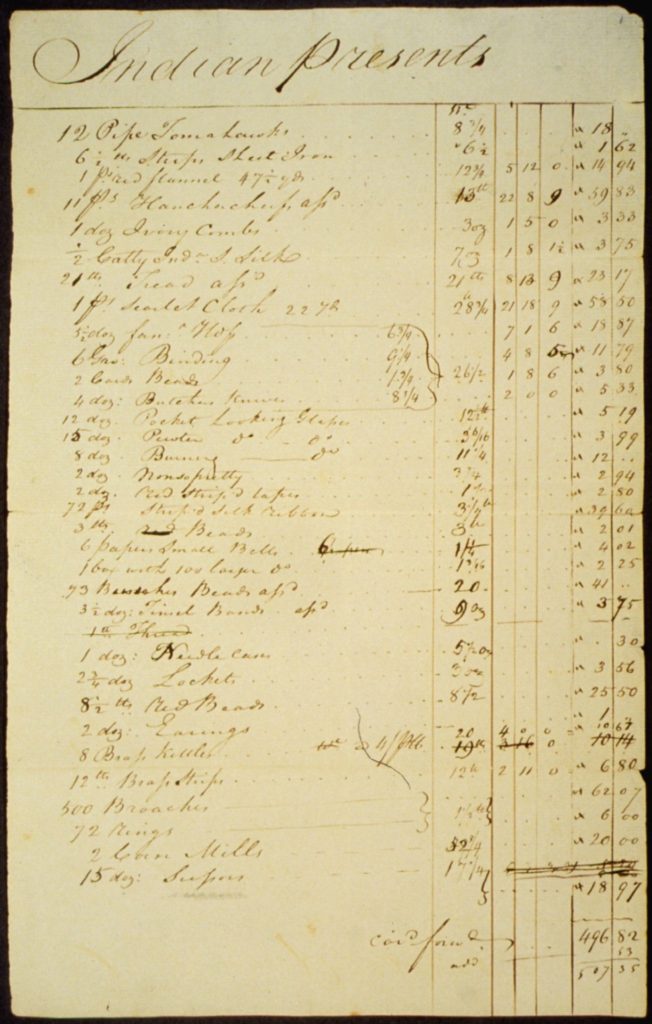 Indian Presents
12 Pipe Tomahawks 8 3/4 " 18 "
6 1/2 lbs Strips Sheet Iron " 6 1/2 " 1 62
1 ps red flannel 47 1/2 yds 12 3/4 5 12 0 " 14 94
11 ps Hancherchiefs assd 13 lb 22 8 9 " 59 83
1 doz Ivory Combs 3 oz 1 5 0 " 3 33
1/2 Catty Inda S. Silk 1 8 1 1/2 " 3 75
21 lbs Tread assd 21 lb 8 13 9 " 23 17
1 ps Scarlet Cloth 22 yds 28 3/4 21 18 9 " 58 50
5 1/2 doz fan 6 3/4 7 1 6 " 18 87
6 Gro: Binding 9 1/4 4 8 5 " 11 79
2 Cards Beads 1 3/4 26 1/2 1 8 6 " 3 80
4 doz: Butcher Knives 8 3/4 2 0 0 " 5 33
12 doz. Pocket Looking Glasses 12 1/2 lb " 5 19
15 doz. Pewter do - do 3 9/16 " 3 99
8 doz. Burning do 11 1/4 " 12 ..
2 doz. Nonsopretty 3 3/4 " 2 94
2 doz. Red Strip'd tapes " 2 80
72 ps Strip'd silk ribbon " 39 60
3 lbs Beads 3 lb " 2 01
6 papers Small Bells " 4 02
1 box with 100 larger do " 2 25
73 Bunches Beads assd 20. " 41 ..
3 1/2 doz: Tinsel Bands assd 9 oz " 3 75
1 doz: Needle Cases " 30
2 3/4 doz Lockets 3 oz " 3 56
8 1/2 lbs Red Beads 8 1/2 " 25 50
2 doz: Earings " 1
8 Brass Kettles 4/ 20 4 0 0 " 10 67
12 lbs Brass Strips 12 lb 2 11 0 " 6 80
500 Broaches " 62 07
72 Rings 1 1/2 lb " 6 00
2 Corn Mills 52 3/4 " 20 00
15 doz: Scissors 17 1/4 " 18 97
card forwd. 496 82
add 53
507 35